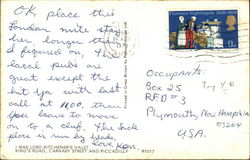 OK, place this
London note starts
her longer than
I figured on. The
local pubs are
great except the
hit ya with last
call at 11:00. Then
you have to move
on to a club. The whole
place is run by kids.
Love, Ken
I WAS LORD KITCHENER'S VALET
KING'S ROAD, CARNABY STREET AND PICCADILLY
R1017
Florence Nightingale 1820-1910
9d
Occupants
Box 25
RFD #3
Plymouth, New Hampshire
03264
U.S.A.